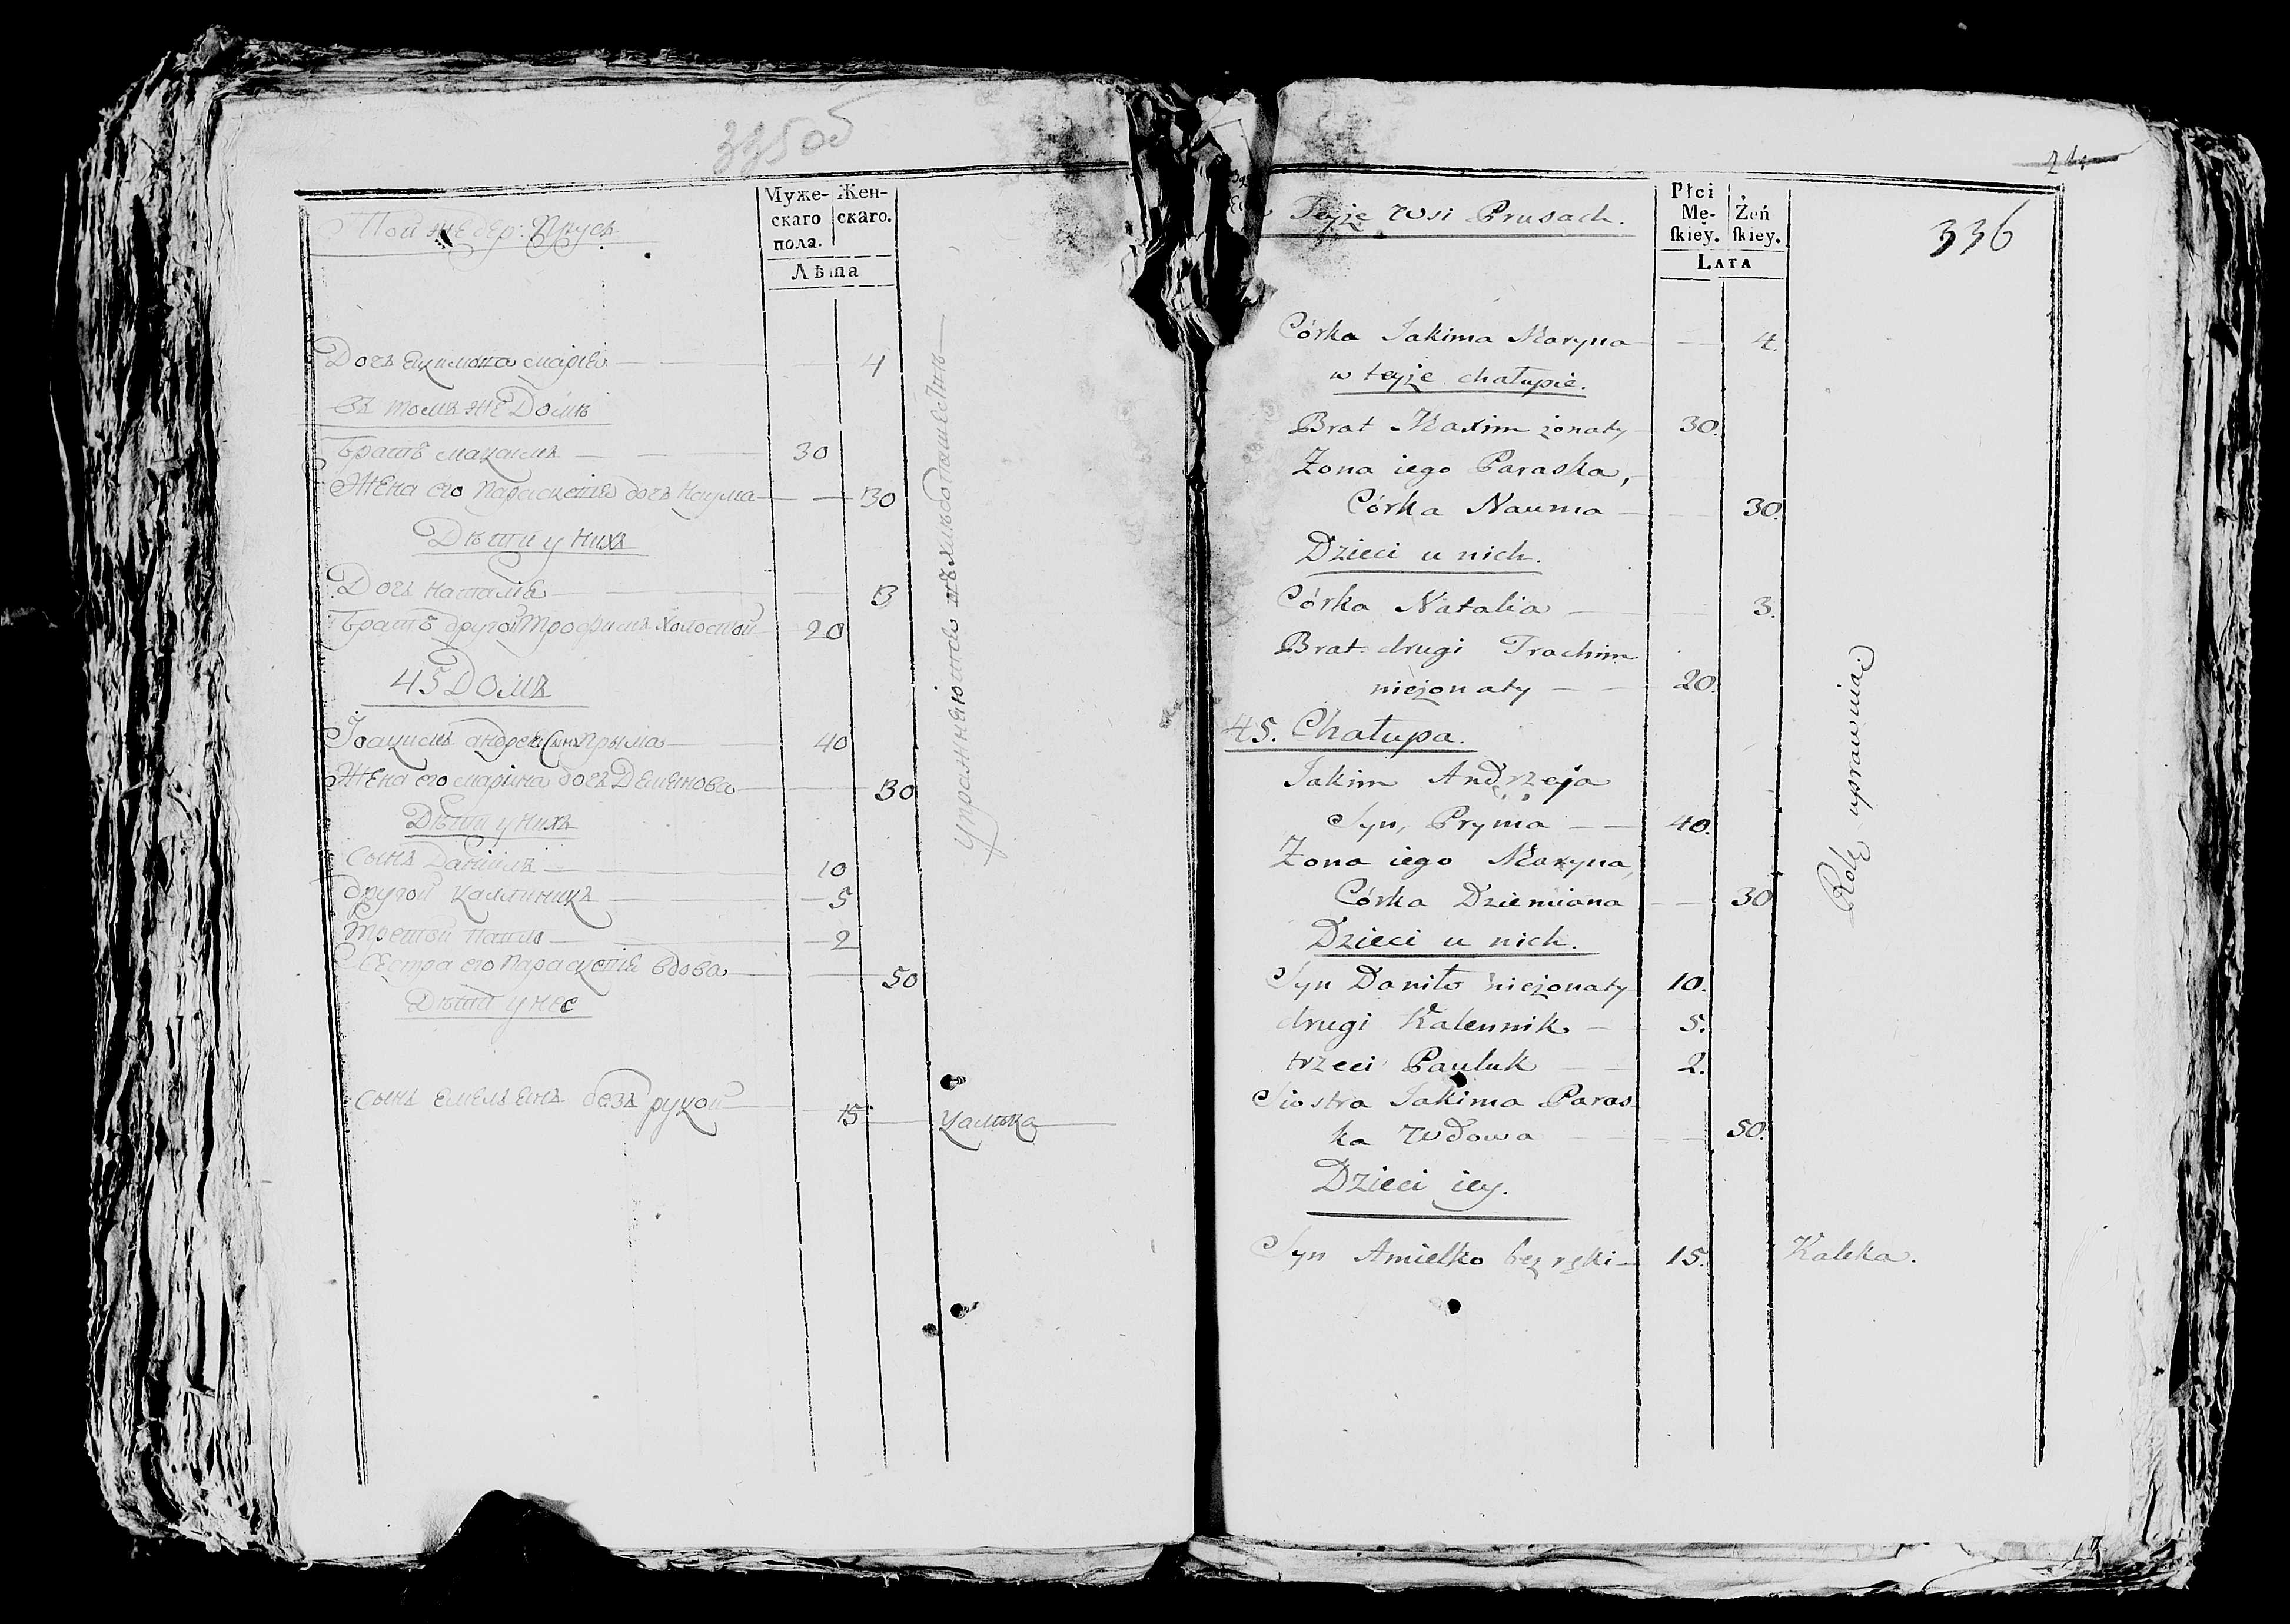 335об
Той же дер: Прусъ
Муже-
скаго
пола.
Жен-
скаго.
Лѣта
Дочь Екимова Марія 4
Въ томъ же Домѣ
Братъ Макаимъ 30
Жена его Параскевія дочь Наума 30
Дѣти у нихъ
Дочь Наталія 3
Братъ другой Трофимъ холостой 20
45 Домъ
Іоакимъ Андрея Сынъ Прыма 40
Жена его Марина дочь Деменова 30
Дѣти у нихъ
Сынъ Даніилъ 10
другой Каллиникъ 5
третій Павло 2
Сестра его Параскевія вдова 50
Дѣти у нее
Сынъ Емельянъ безъ рукой 15 Калѣка
Упражняются въ хлѣбопашествѣ
Teyże Wsi Prusach.
Płci
Mę-
skiey.
Żeń
skiey.
LATA
336
Córka Jakima Maryna 4.
w teyże chałupie.
Brat Maxim żonaty 30.
Żona iego Paraska,
Córka Nauma 30.
Dzieci u nich.
Córka Natalia 3.
Brat drugi Trochim
nieżonaty 20.
45. Chałupa.
Jakim Andrzeja
Syn, Pryma 40.
Żona iego Maryna,
Córka Dziemiana 30
Dzieci u nich.
Syn Daniło nieżonaty 10.
drugi Kalennik 5.
trzeci Pauluk 2.
Siostra Jakima Paras-
ka Wdowa 50.
Dzieci iey.
Syn Amielko bez ręki 15. Kaleka.
Rolę uprawuia